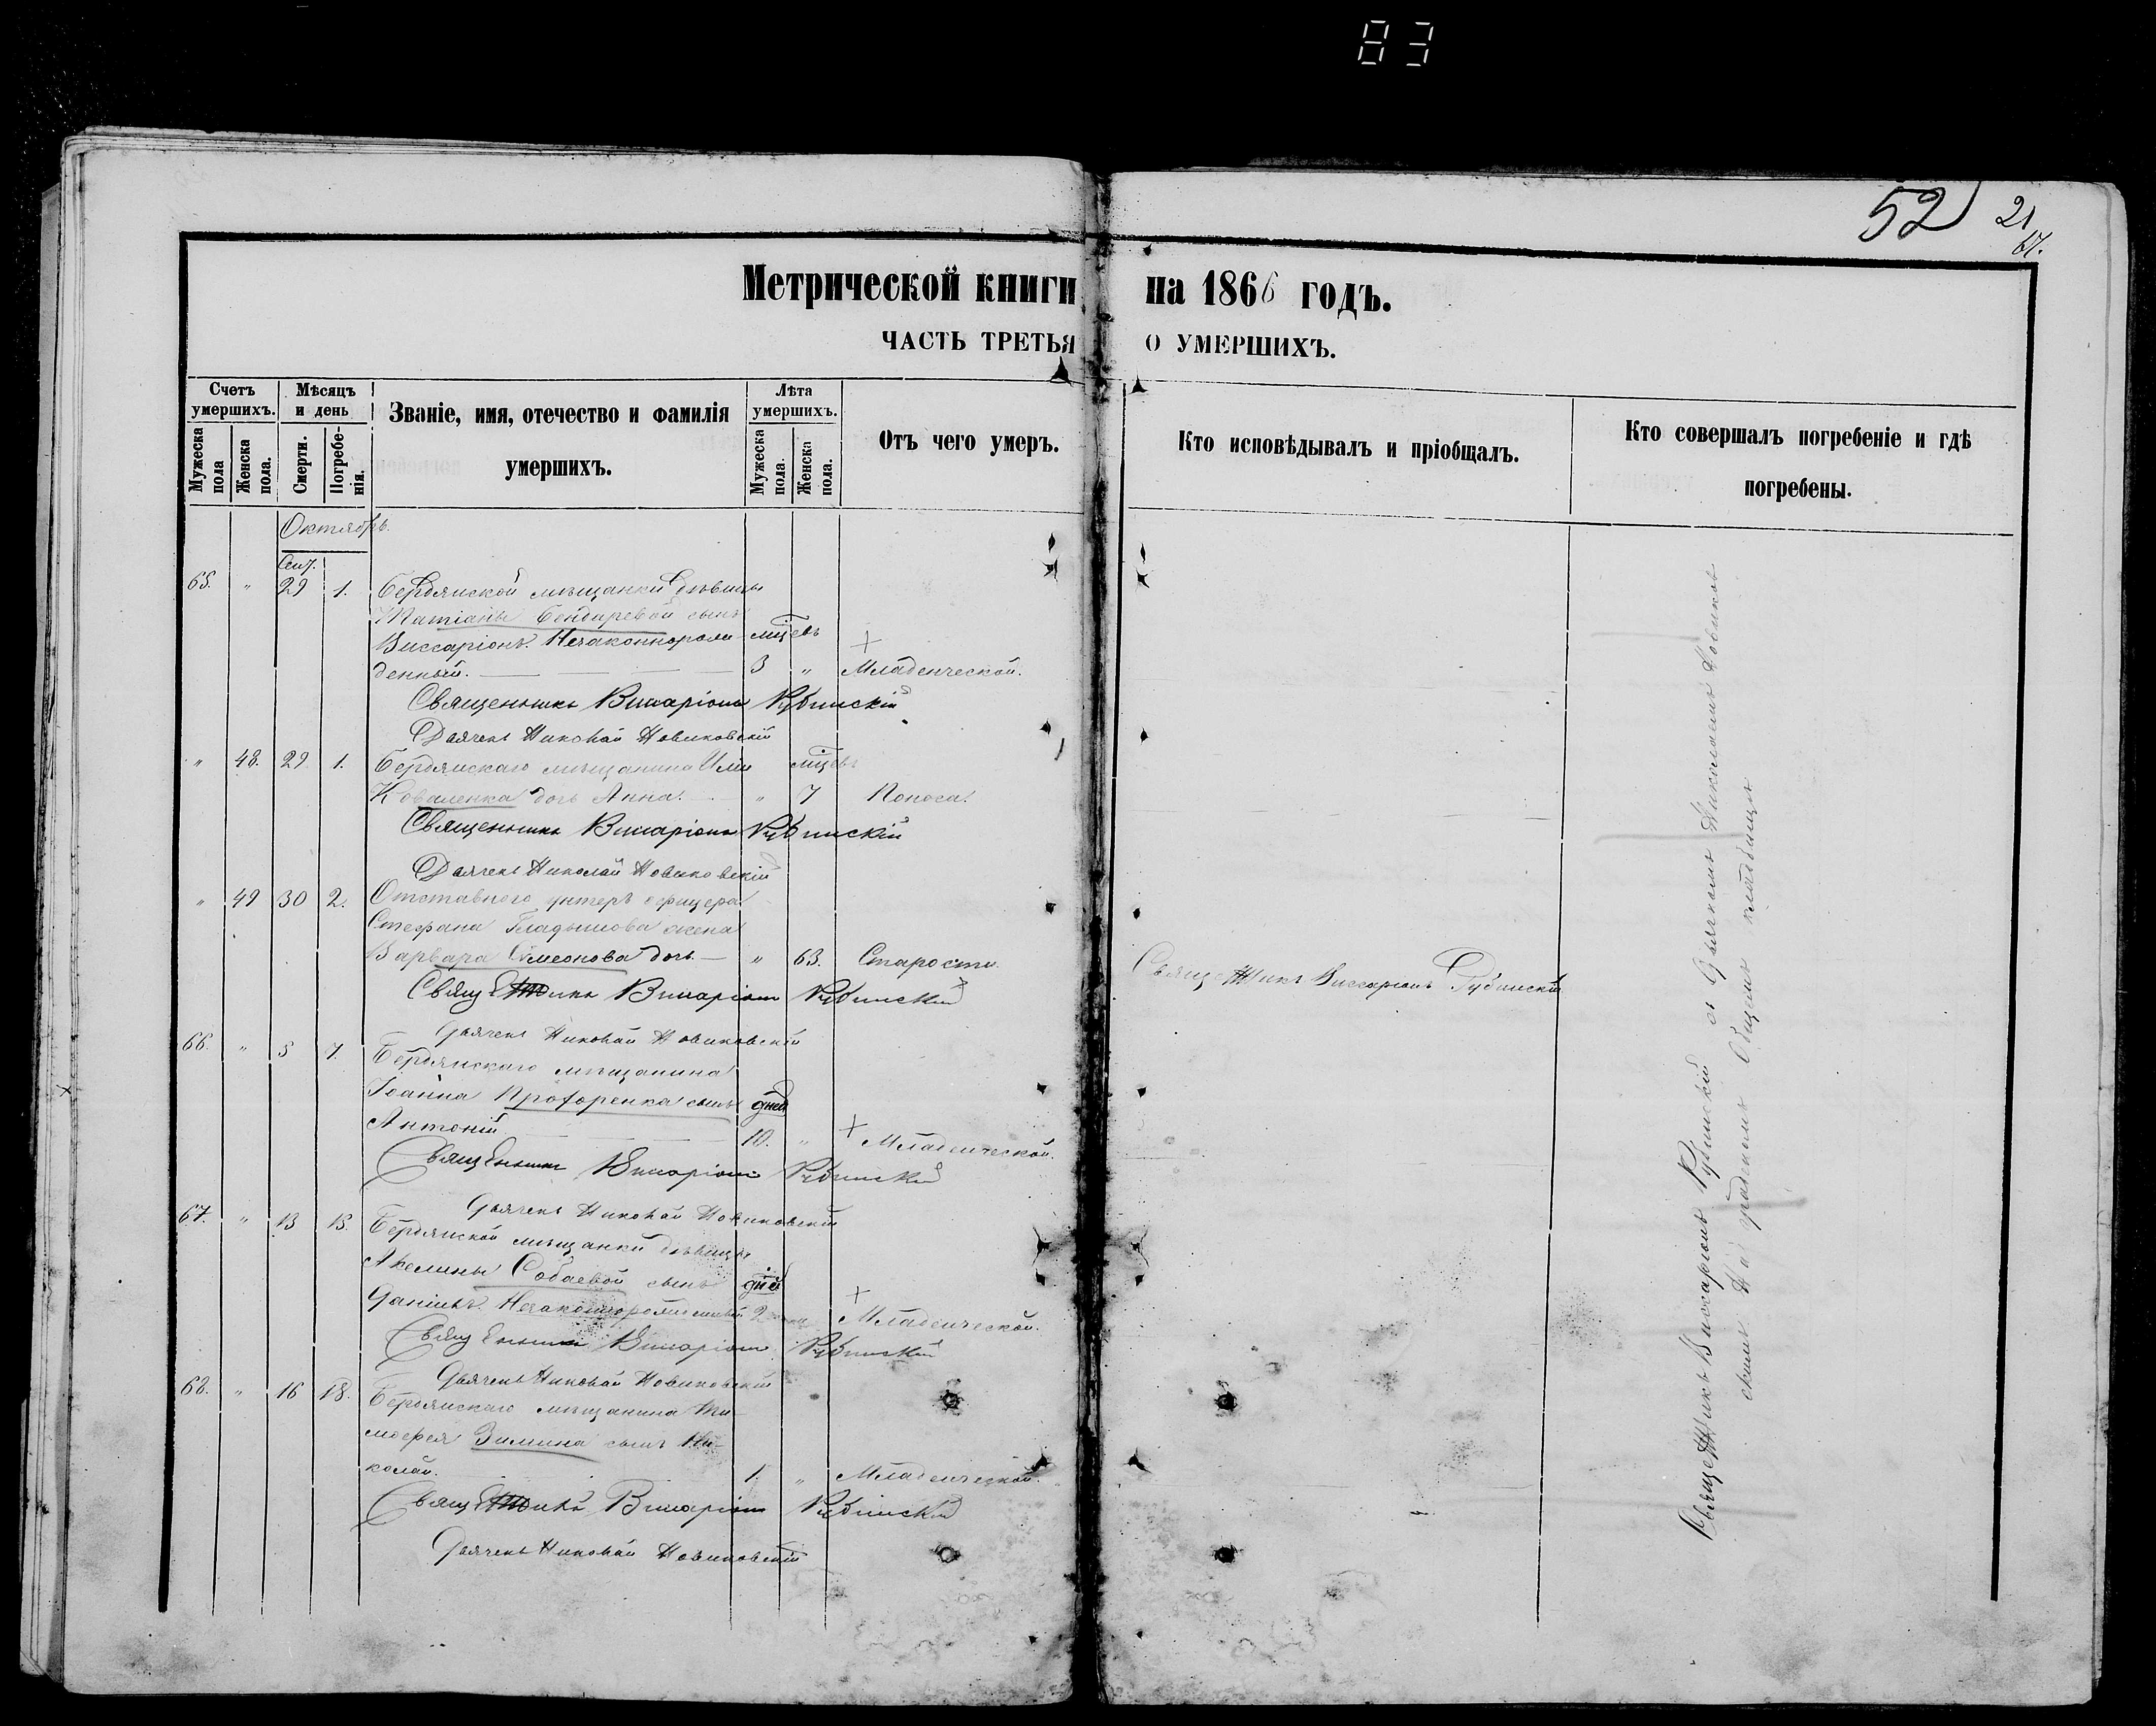 83
52
21
67.
Метрической книги на 1866 годъ.
ЧАСТЬ ТРЕТЬЯ О УМЕРШИХЪ.
Счетъ умершихъ.
Мѣсяцъ и день
Званіе, имя, отечество и фамилія умершихъ.
Лѣта умершихъ.
Отъ чего умеръ.
Кто исповѣдывалъ и пріобщалъ.
Кто совершалъ погребеніе и гдѣ погребены.
Мужеска пола
Женска пола.
Смерти.
Погребенія.
Мужеска пола.
Женска пола.
Октябрь.
Сент.
65. " 29 1. Бердянской мѣщанки дѣвицы
Татіаны Бондаревой сынъ
Виссаріонъ. Незаконнорож- мцевъ
денный. 3 " Младенческой.
Священникъ Виссаріонъ Рубинскій
Дьячекъ Николай Новиковскій
" 48. 29 1. Бердянскаго мѣщанина Иліи мцевъ
Коваленка дочь Анна. " 7 Поноса.
Священникъ Виссаріонъ Рубинскій
Дьячекъ Николай Новиковскій
" 49 30 2. Отставнаго унтеръ офицера
Стефана Гладышова жена
Варвара Симеонова дочь " 63. Старости
Священникъ Виссаріонъ Рубинскій
Священникъ Виссаріонъ Рубинскій
Дьячекъ Николай Новиковскій
66. " 5 7. Бердянскаго мѣщанина
Іоанна Прохоренка сынъ дней
Антоній 10. " Младенческой.
Священникъ Виссаріонъ Рубинскій
Дьячекъ Николай Новиковскій
67. " 13 15. Бердянской мѣщанки дѣвицы
Акелины Собаевой сынъ дней
Даніилъ. Незаконнорожденный 2 Младенческой.
Священникъ Виссаріонъ Рубинскій
Дьячекъ Николай Новиковскій
68. " 16 18. Бердянскаго мѣщанина Ти-
мофея Зимина сынъ Ни-
колай. 1. " Младенческой.
Священникъ Виссаріонъ Рубинскій
Дьячекъ Николай Новиковскій
Священникъ Виссаріонъ Рубинскій съ Дьячкомъ Николаемъ Новиков
скимъ На градскомъ Общемъ кладбищѣ